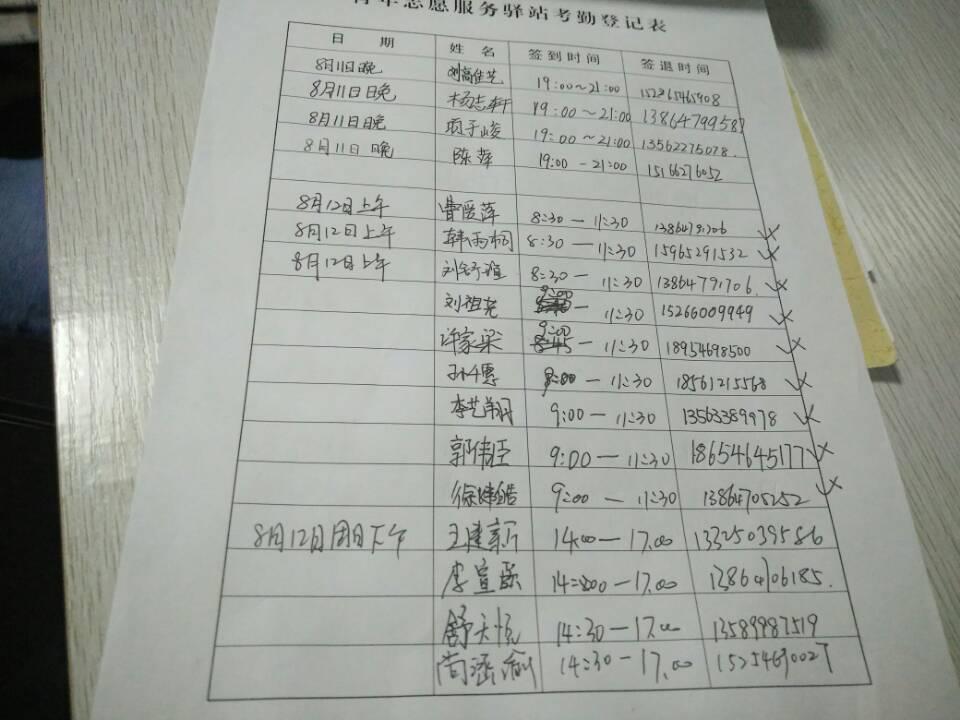 青年志愿服务驿站考勤登记表
日 期 姓 名 签到时间 签退时间
8月11日晚 刘高佳艺 19:00~21:00 15225465908
8月11日晚 杨志轩 19:00~21:00 13864799587
8月11日晚 项子峻 19:00~21:00 13562275078.
8月11日晚 陈萍 19:00-21:00 15166276052
8月12日上午 曹爱萍 8:30-11:30 13864791706
8月12日上午 韩雨桐 8:30-11:30 15965291532
8月12日上午 刘舒瑄 8:30-11:30 13864791706.
刘祖尧 9:00-11:30 15266009949
许家梁 9:00-11:30 18954698500
孙千惠 9:00-11:30 18561215568
李艺翔 9:00-11:30 13563389978
郭伟臣 9:00-11:30 18654645177
徐建皓 9:00-11:30 13864705252
8月12日周日下午 王建新 14:00-17:00 13325039586
李宣 14:00-17:00 13864706185.
舒天悦 14:30-17:00 13589987519
尚涵瑜 14:30-17:00 15254690027